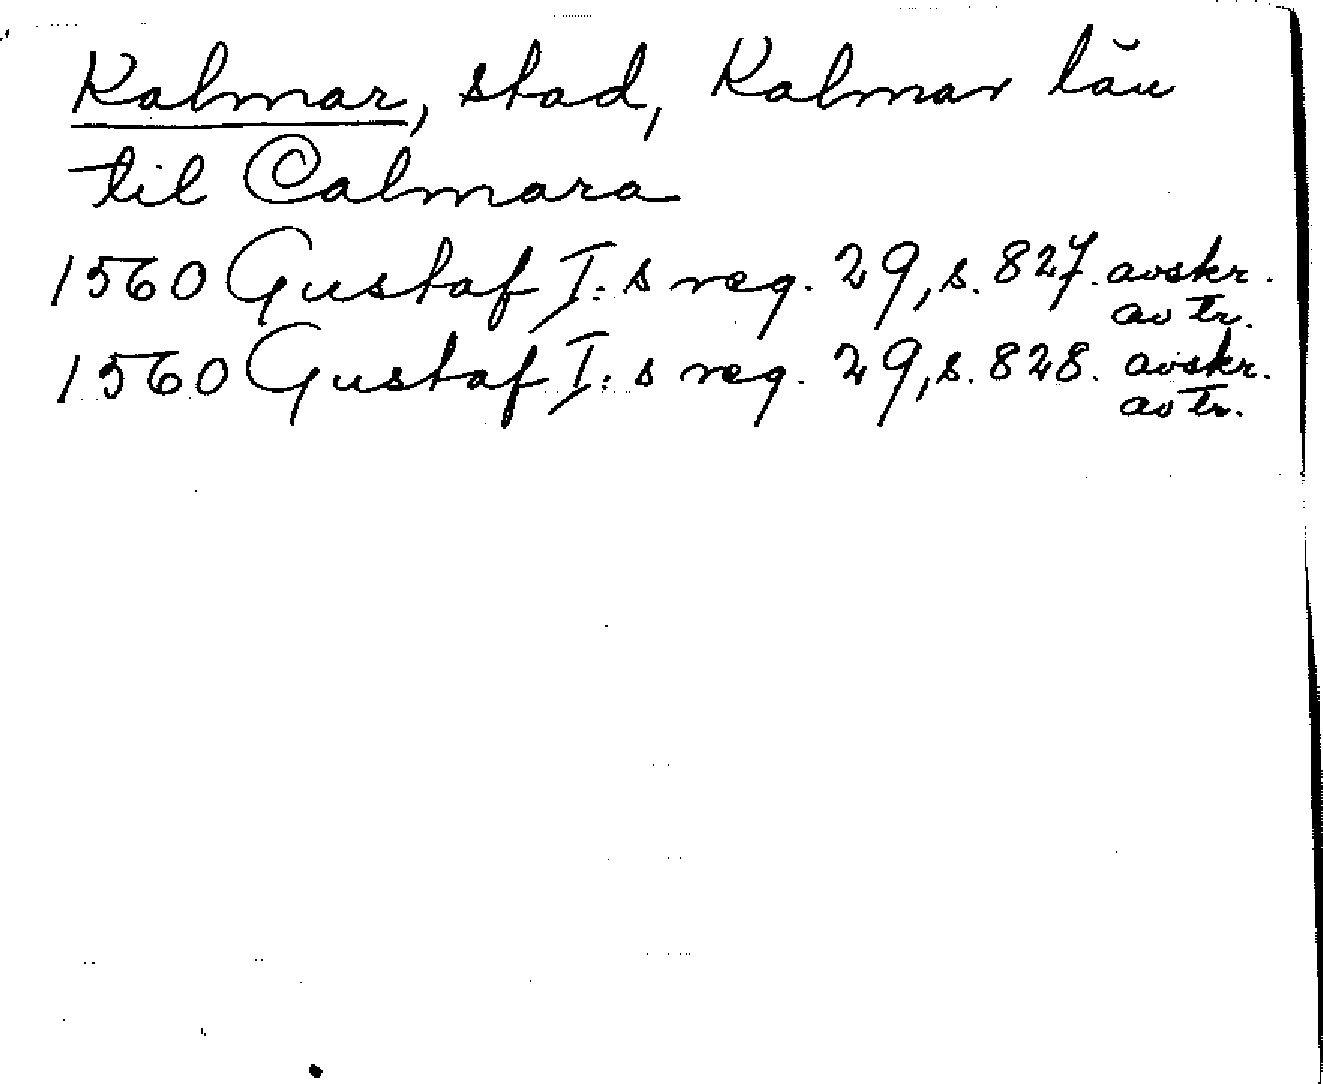 Kalmar, stad, Kalmar län
til Calmara
1560 Gustaf I:s reg. 29, s. 827. avskr.
av tr.
1560 Gustaf I:s reg. 29, s. 828. avskr.
av tr.